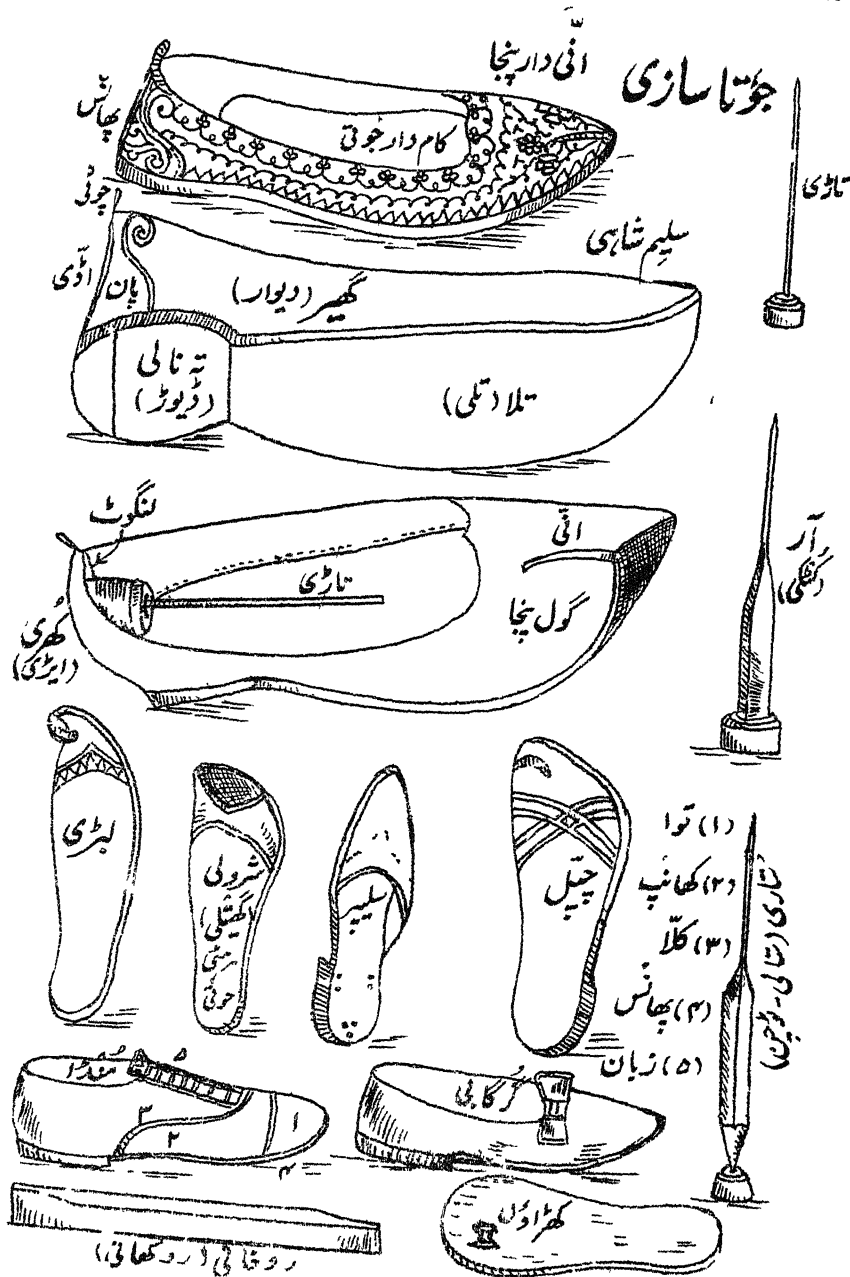 جوتا سازی
انّی دار پنجا
پھانّس
کام دار جوتی
چوٹی
تاڑی
سلیم شاہی
اڈّی
پان
گھیر (دیوار)
تہ نالی
(ڈیوڑ)
تلا (تلی)
لنگوٹ
انّی
تاڑی
گول پنجا
کُھری
(ایڑی)
آر
(کُٹکی)
لبڑی
شرولی
(کھیتلی)
جوتی
سلیپر
چپّل
(۱) توا
(۲) کھانپ
(۳) کلّا
(۴) پھانس
(۵) زبان
سُتاری (ستالی -
مُنڈا
۵
۳
۲
۱
۴
گرگابی
کھڑاؤں
روخانی (روکھانی)